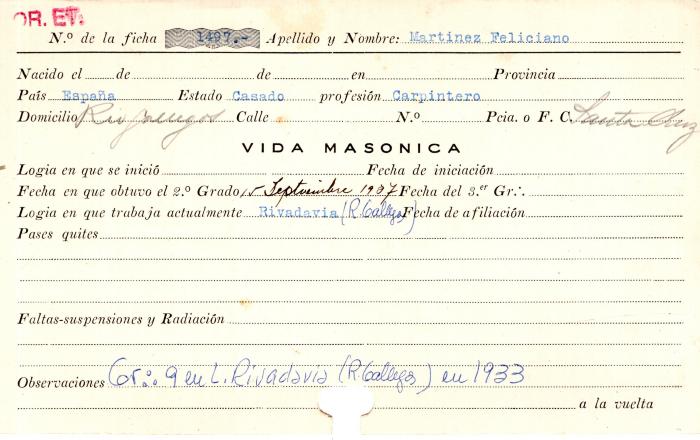 OR. ET.
N.º de la ficha 1497.- Apellido y Nombre: Martinez Feliciano
Nacido el de de en Provincia
País España Estado Casado profesión Carpintero
Domicilio Rio Gallegos Calle N.º Pcia. o F. C. Santa Cruz
VIDA MASONICA
Logia en que se inició Fecha de iniciación
Fecha en que obtuvo el 2.º Grado 15 Septiembre 1907 Fecha del 3.er Gr∴
Logia en que trabaja actualmente Rivadavia (R. Gallegos) Fecha de afiliación
Pases quites
Faltas-suspensiones y Radiación
Observaciones Gr∴ 9 en L. Rivadavia (R. Gallegos) en 1933
a la vuelta